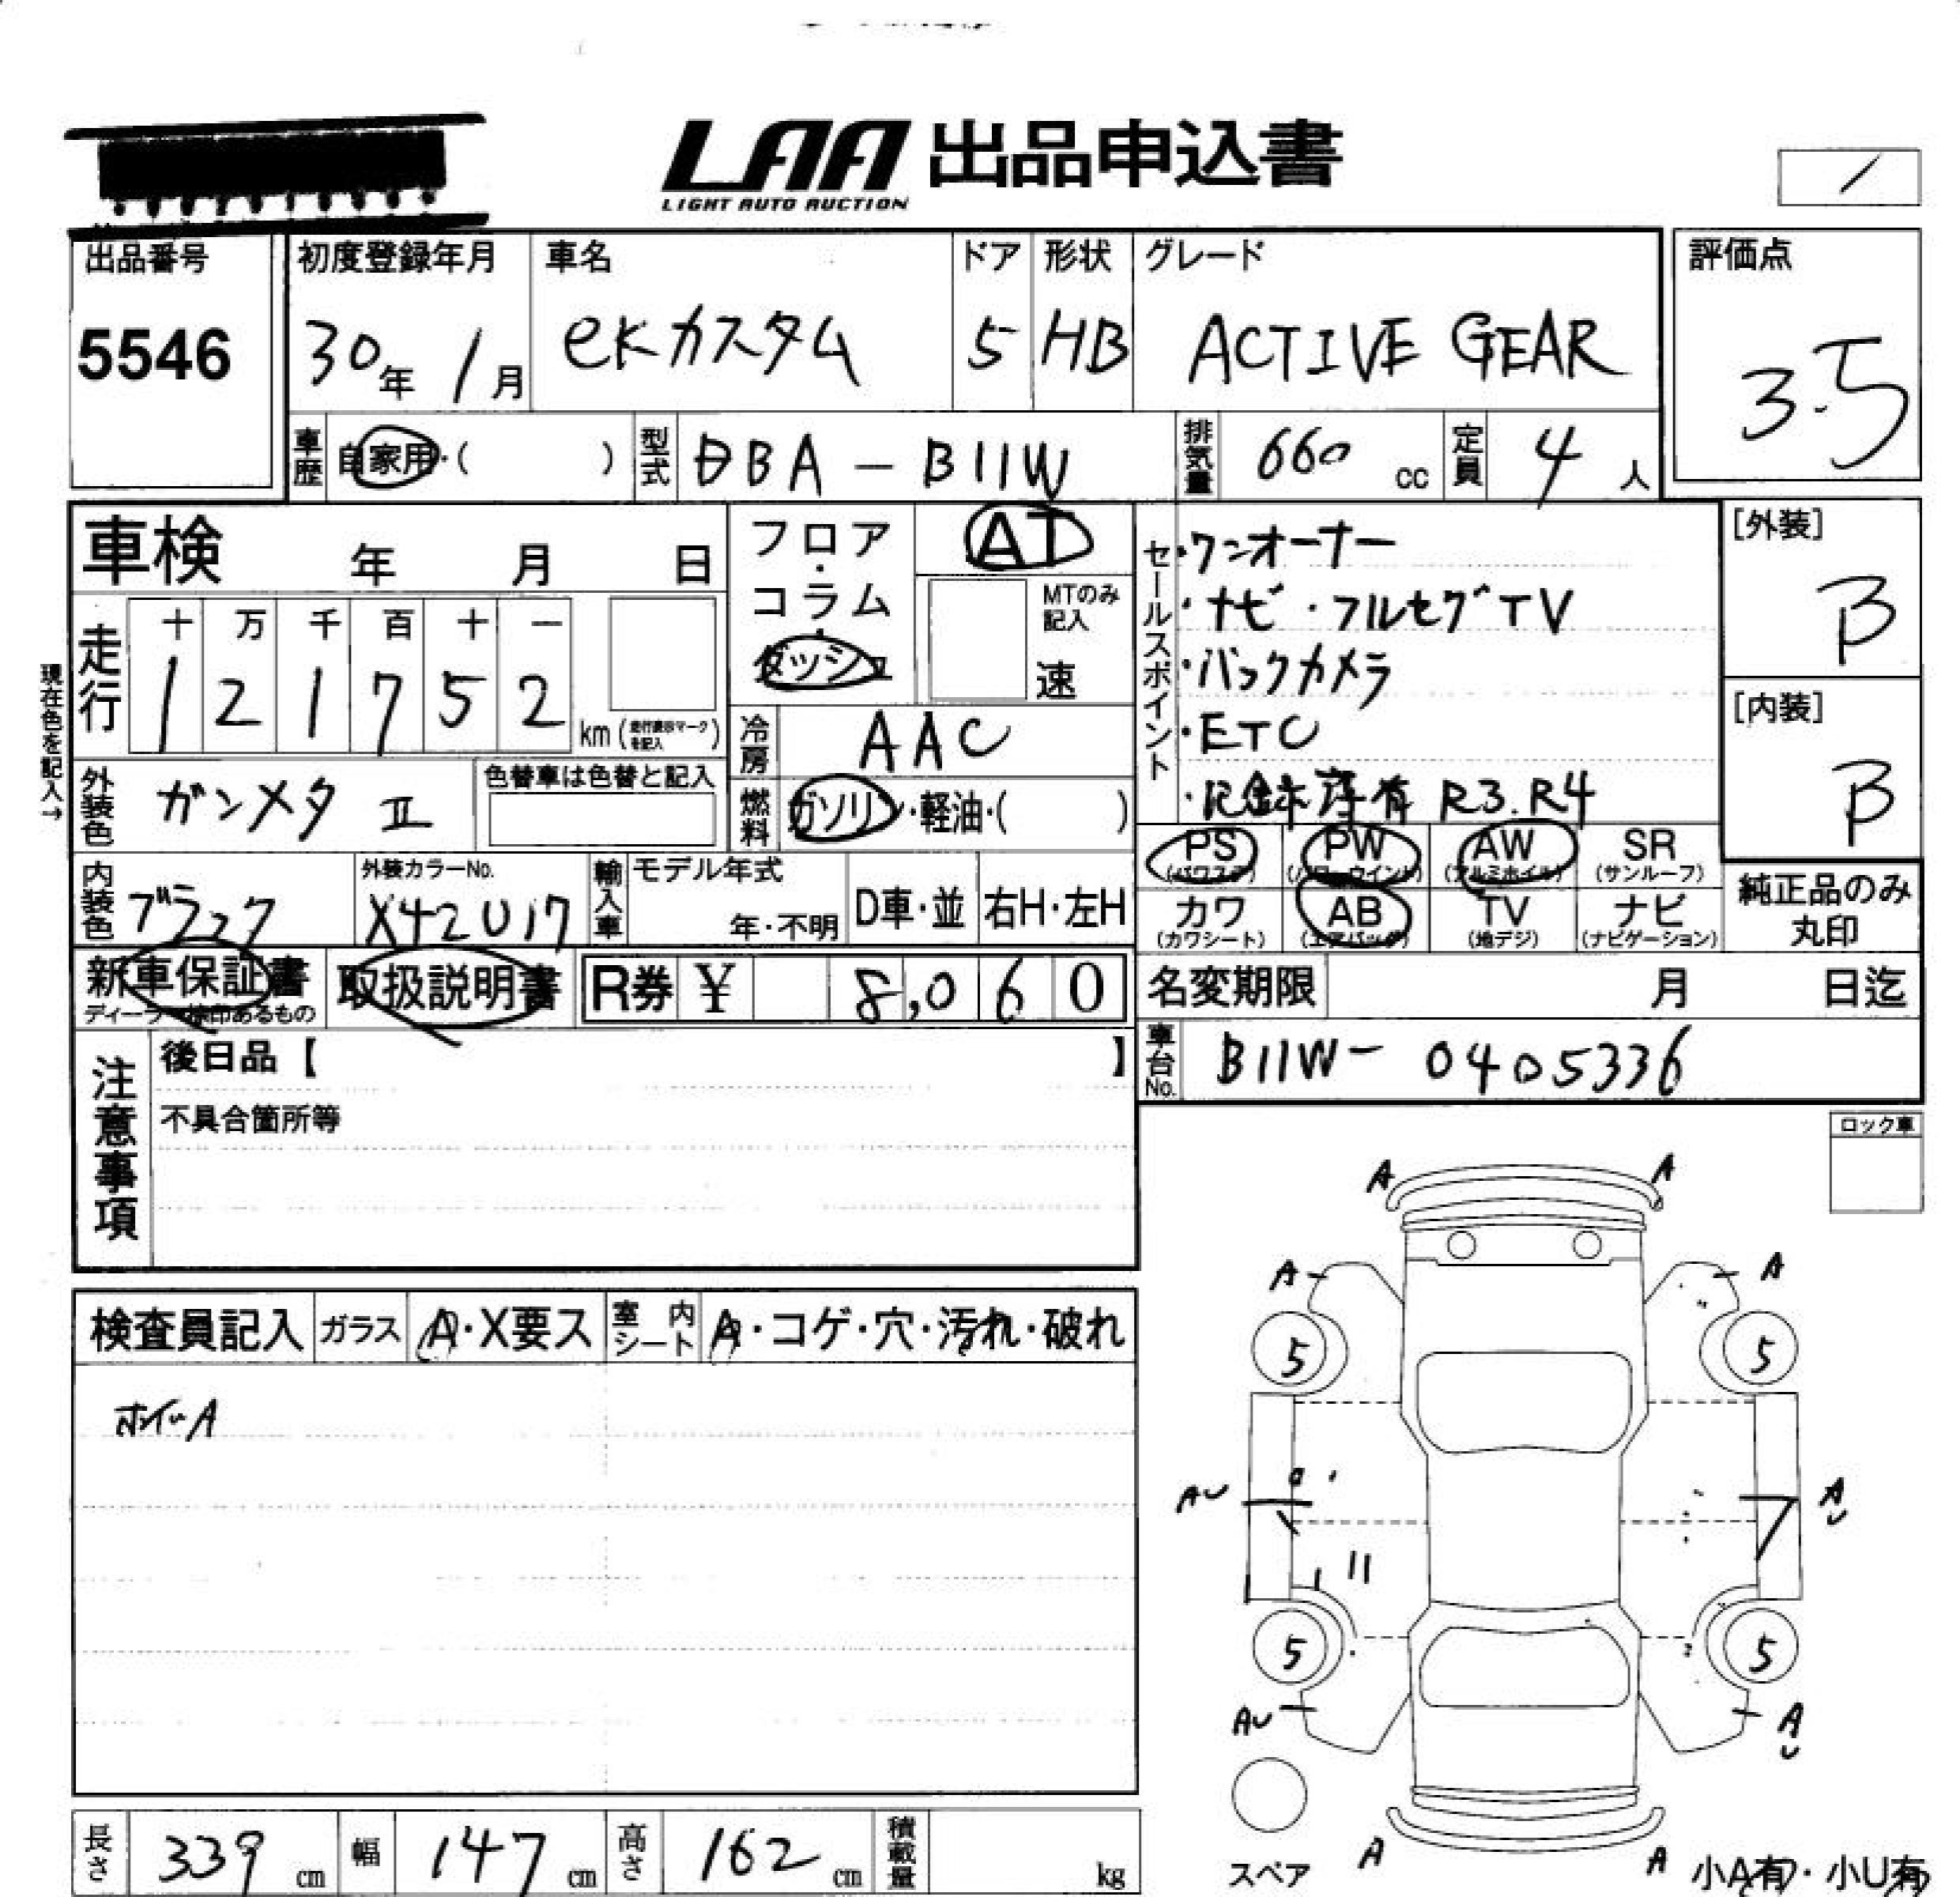 LAA 出品申込書
LIGHT AUTO AUCTION
出品番号 初度登録年月 車名 ドア 形状 グレード 評価点
5546 30年 1月 eKカスタム 5 HB ACTIVE GEAR 3.5
車歴 自家用・( ) 型式 DBA-B11W 排気量 660 cc 定員 4 人
車検 年 月 日
フロア・コラム・ダッシュ
AT
MTのみ記入
速
セールスポイント
・ワンオーナー
・ナビ・フルセグTV
・バックカメラ
・ETC
・記録簿有 R3.R4
[外装]
B
[内装]
B
現在色を記入→
走行 十 万 千 百 十 一
1 2 1 7 5 2 km (走行表示マークを記入)
冷房 AAC
外装色 ガンメタ II 色替車は色替と記入
燃料 ガソリン・軽油・( )
PS (パワステ) PW (パワーウインド) AW (アルミホイル) SR (サンルーフ)
カワ (カワシート) AB (エアバッグ) TV (地デジ) ナビ (ナビゲーション)
純正品のみ丸印
内装色 ブラック 外装カラーNo. X42U17 輸入車 モデル年式 年・不明 D車・並 右H・左H
新車保証書 取扱説明書 R券 ¥ 8,060
ディーラー検印あるもの
名変期限 月 日迄
車台No. B11W-0405336
注意事項
後日品【 】
不具合箇所等
ロック車
検査員記入 ガラス A・X要ス 室内シート A・コゲ・穴・汚れ・破れ
ホイールA
A A
A A
5 5
AU AU
5 5
AU AU
スペア
A A
小A有・小U有
長さ 339 cm 幅 147 cm 高さ 162 cm 積載量 kg